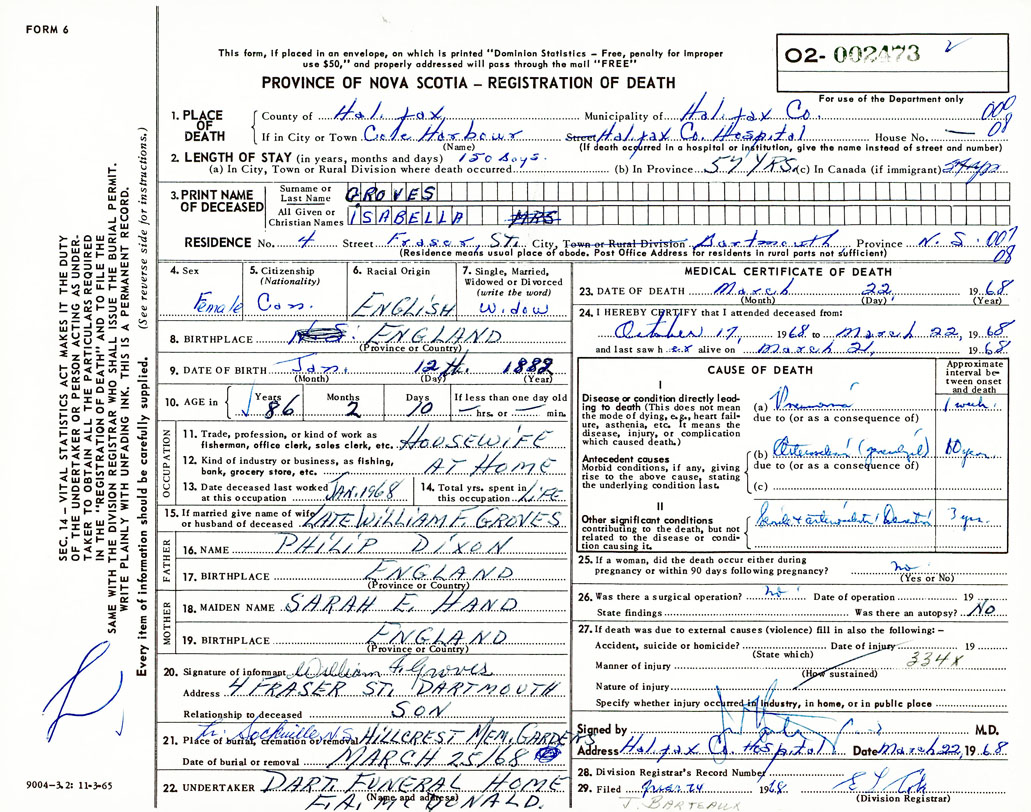 FORM 6
O2- 002473
This form, if placed in an envelope, on which is printed "Dominion Statistics – Free, penalty for improper
use $50," and properly addressed will pass through the mail "FREE"
PROVINCE OF NOVA SCOTIA – REGISTRATION OF DEATH
For use of the Department only
1. PLACE OF DEATH County of Halifax Municipality of Halifax Co. 000
If in City or Town Cole Harbour Street Halifax Co. Hospital House No. — 08
(Name) (If death occurred in a hospital or institution, give the name instead of street and number)
2. LENGTH OF STAY (in years, months and days) 150 Days.
(a) In City, Town or Rural Division where death occurred (b) In Province 57 YRS (c) In Canada (if immigrant)
3. PRINT NAME OF DECEASED Surname or Last Name GROVES
All Given or Christian Names ISABELLA MRS
RESIDENCE No. 4 Street Fraser, ST. City, Town or Rural Division Dartmouth Province N.S. 007
(Residence means usual place of abode. Post Office Address for residents in rural parts not sufficient) 08
4. Sex Female
5. Citizenship (Nationality) Can.
6. Racial Origin ENGLISH
7. Single, Married, Widowed or Divorced (write the word) Widow
8. BIRTHPLACE N.S. ENGLAND
(Province or Country)
9. DATE OF BIRTH Jan. 12th. 1882
(Month) (Day) (Year)
10. AGE in Years 86 Months 2 Days 10 If less than one day old — hrs. or — min.
OCCUPATION
11. Trade, profession, or kind of work as fisherman, office clerk, sales clerk, etc. HOUSEWIFE
12. Kind of industry or business, as fishing, bank, grocery store, etc. AT HOME
13. Date deceased last worked at this occupation JAN. 1968
14. Total yrs. spent in this occupation LIFE
15. If married give name of wife or husband of deceased LATE WILLIAM F. GROVES
FATHER
16. NAME PHILIP DIXON
17. BIRTHPLACE ENGLAND
(Province or Country)
MOTHER
18. MAIDEN NAME SARAH E. HAND
19. BIRTHPLACE ENGLAND
(Province or Country)
20. Signature of informant William F Groves
Address 4 FRASER ST. DARTMOUTH
Relationship to deceased SON
21. Place of burial, cremation or removal Sackville N.S. HILLCREST MEM. GARDENS
Date of burial or removal MARCH 25/68
22. UNDERTAKER DART. FUNERAL HOME
(Name and address)
MEDICAL CERTIFICATE OF DEATH
23. DATE OF DEATH March 22, 1968
(Month) (Day) (Year)
24. I HEREBY CERTIFY that I attended deceased from:
October 17, 1968 to March 22, 1968
and last saw her alive on March 21, 1968
CAUSE OF DEATH
Approximate interval between onset and death
I
Disease or condition directly leading to death (This does not mean the mode of dying, e.g., heart failure, asthenia, etc. It means the disease, injury, or complication which caused death.)
(a) Pneumonia 1 week.
due to (or as a consequence of)
Antecedent causes
Morbid conditions, if any, giving rise to the above cause, stating the underlying condition last.
(b) 10 years
due to (or as a consequence of)
(c)
II
Other significant conditions contributing to the death, but not related to the disease or condition causing it.
3 yrs.
25. If a woman, did the death occur either during pregnancy or within 90 days following pregnancy? no
(Yes or No)
26. Was there a surgical operation? no Date of operation 19
State findings Was there an autopsy? No
27. If death was due to external causes (violence) fill in also the following: –
Accident, suicide or homicide? Date of injury 19
(State which) 334X
Manner of injury
(How sustained)
Nature of injury
Specify whether injury occurred in industry, in home, or in public place
Signed by M.D.
Address Halifax Co. Hospital. Date March 22, 1968
28. Division Registrar's Record Number
29. Filed 1968.
(Division Registrar)
J. BARTEAUX
SEC. 14 – VITAL STATISTICS ACT MAKES IT THE DUTY
OF THE UNDERTAKER OR PERSON ACTING AS UNDER-
TAKER TO OBTAIN ALL THE PARTICULARS REQUIRED
IN THE "REGISTRATION OF DEATH" AND TO FILE THE
SAME WITH THE DIVISION REGISTRAR WHO SHALL ISSUE THE BURIAL PERMIT.
WRITE PLAINLY WITH UNFADING INK. THIS IS A PERMANENT RECORD.
Every item of information should be carefully supplied. (See reverse side for instructions.)
9004-3.2: 11-3-65